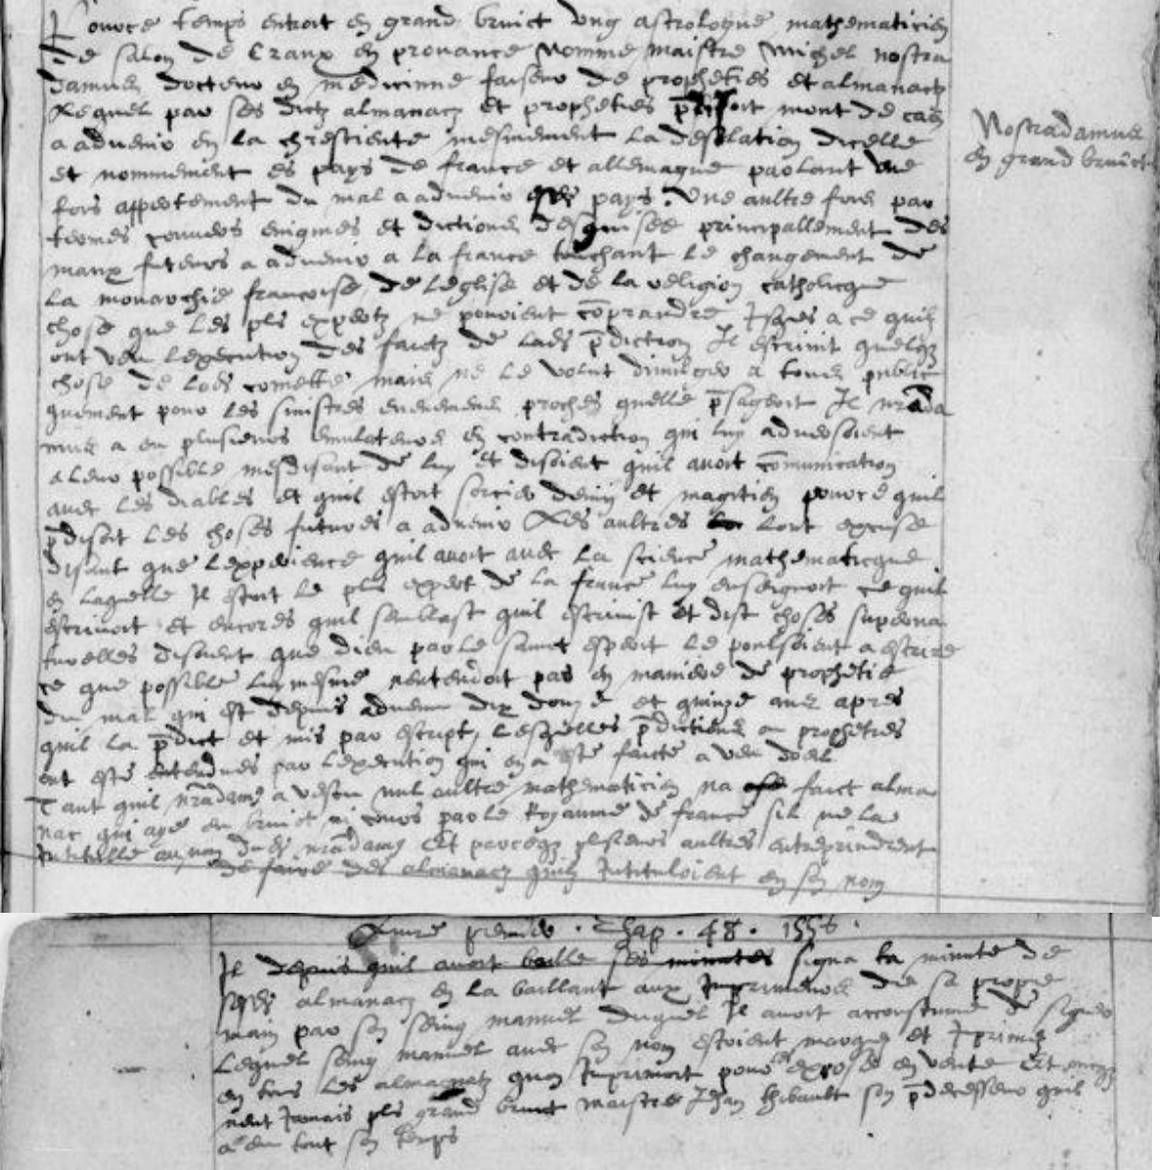 Pource temps entroit en grand bruict ung astrologue mathematicien
de Salon de Craux en provance nomme maistre Michel Nostra
damus docteur en medicinne faiseur de propheties et almanactz
Lequel par ses dictz almanacz et propheties mont de cas
a advenir en la chrestiente mesmement la desolation dicelle
et nommement es pays de france et allemagne parlant une
fois appertement du mal a advenir pays. Une aultre fois par
termes couvers enigmes et dictions desguisee principallement des
maux futeurs a advenir a la france touchant le changement de
la monarchie francoise de leglise et de la religion catholicque
chose que les pls expertz ne pouvoient comprandre Jsques a ce quilz
ont veu lexecution des faictz de lads pdiction Il escrivit quelq
chose de lads comette mais ne le volut divulger a tous public
quement pour les sinistres evenemens proches quelle psageoit Il nrada
mus a eu plusieurs emulateurs en contradiction qui luy adversoient
a leur possible mesdisant de luy et disoient quil avoit comunication
avec les diables et quil estoit sorcier devin et magitien pource quil
pdisoit les choses futures a advenir Les aultres lont excuse
disant que lexperience quil avoit avec la science mathematicque
en laquelle Il estoit le pls expert de la france luy enseignoit ce quil
escrivoit et encores quil semblast quil escrivist et dist choses superna
turelles disoient que dieu par le sainct esperit le poulsoient a escrire
ce que possible luy mesme nentendoit pas en maniere de prophetie
du mal qui est depuis advenu dix douze et quinze ans apres
quil la pdict et mis par escript, Lesquelles pdictions ou propheties
ont este entendues par lexecution qui en a este faicte a veu doeil
Tant quil nradam a vescu nul aultre mathematicien na faict alma
nac qui aye eu bruict ni cours par le Royaume de france sil ne la
Intitulle au nom duds nradamus Et parceq plsieurs aultres entreprindrent
de faire des almanacz quilz Intituloient en son nom
Nostradamus
en grand bruict
Livre premier . Chap . 48 . 1556 .
Il depuis quil avoit baille ses minutes signa la minute de
almanacz en la baillant aux Imprimeurs de sa propre
main par son seing manuel duquel Il avoit accoustume de signer
Lequel seing manuel avec son nom estoient marque et Iprimez
en tous les almanactz quon Imprimoit pour expose en vente Et oncq
neut Jamais pls grand bruict maistre Jehan thibault son pdecesseur quil
a eu tout son temps